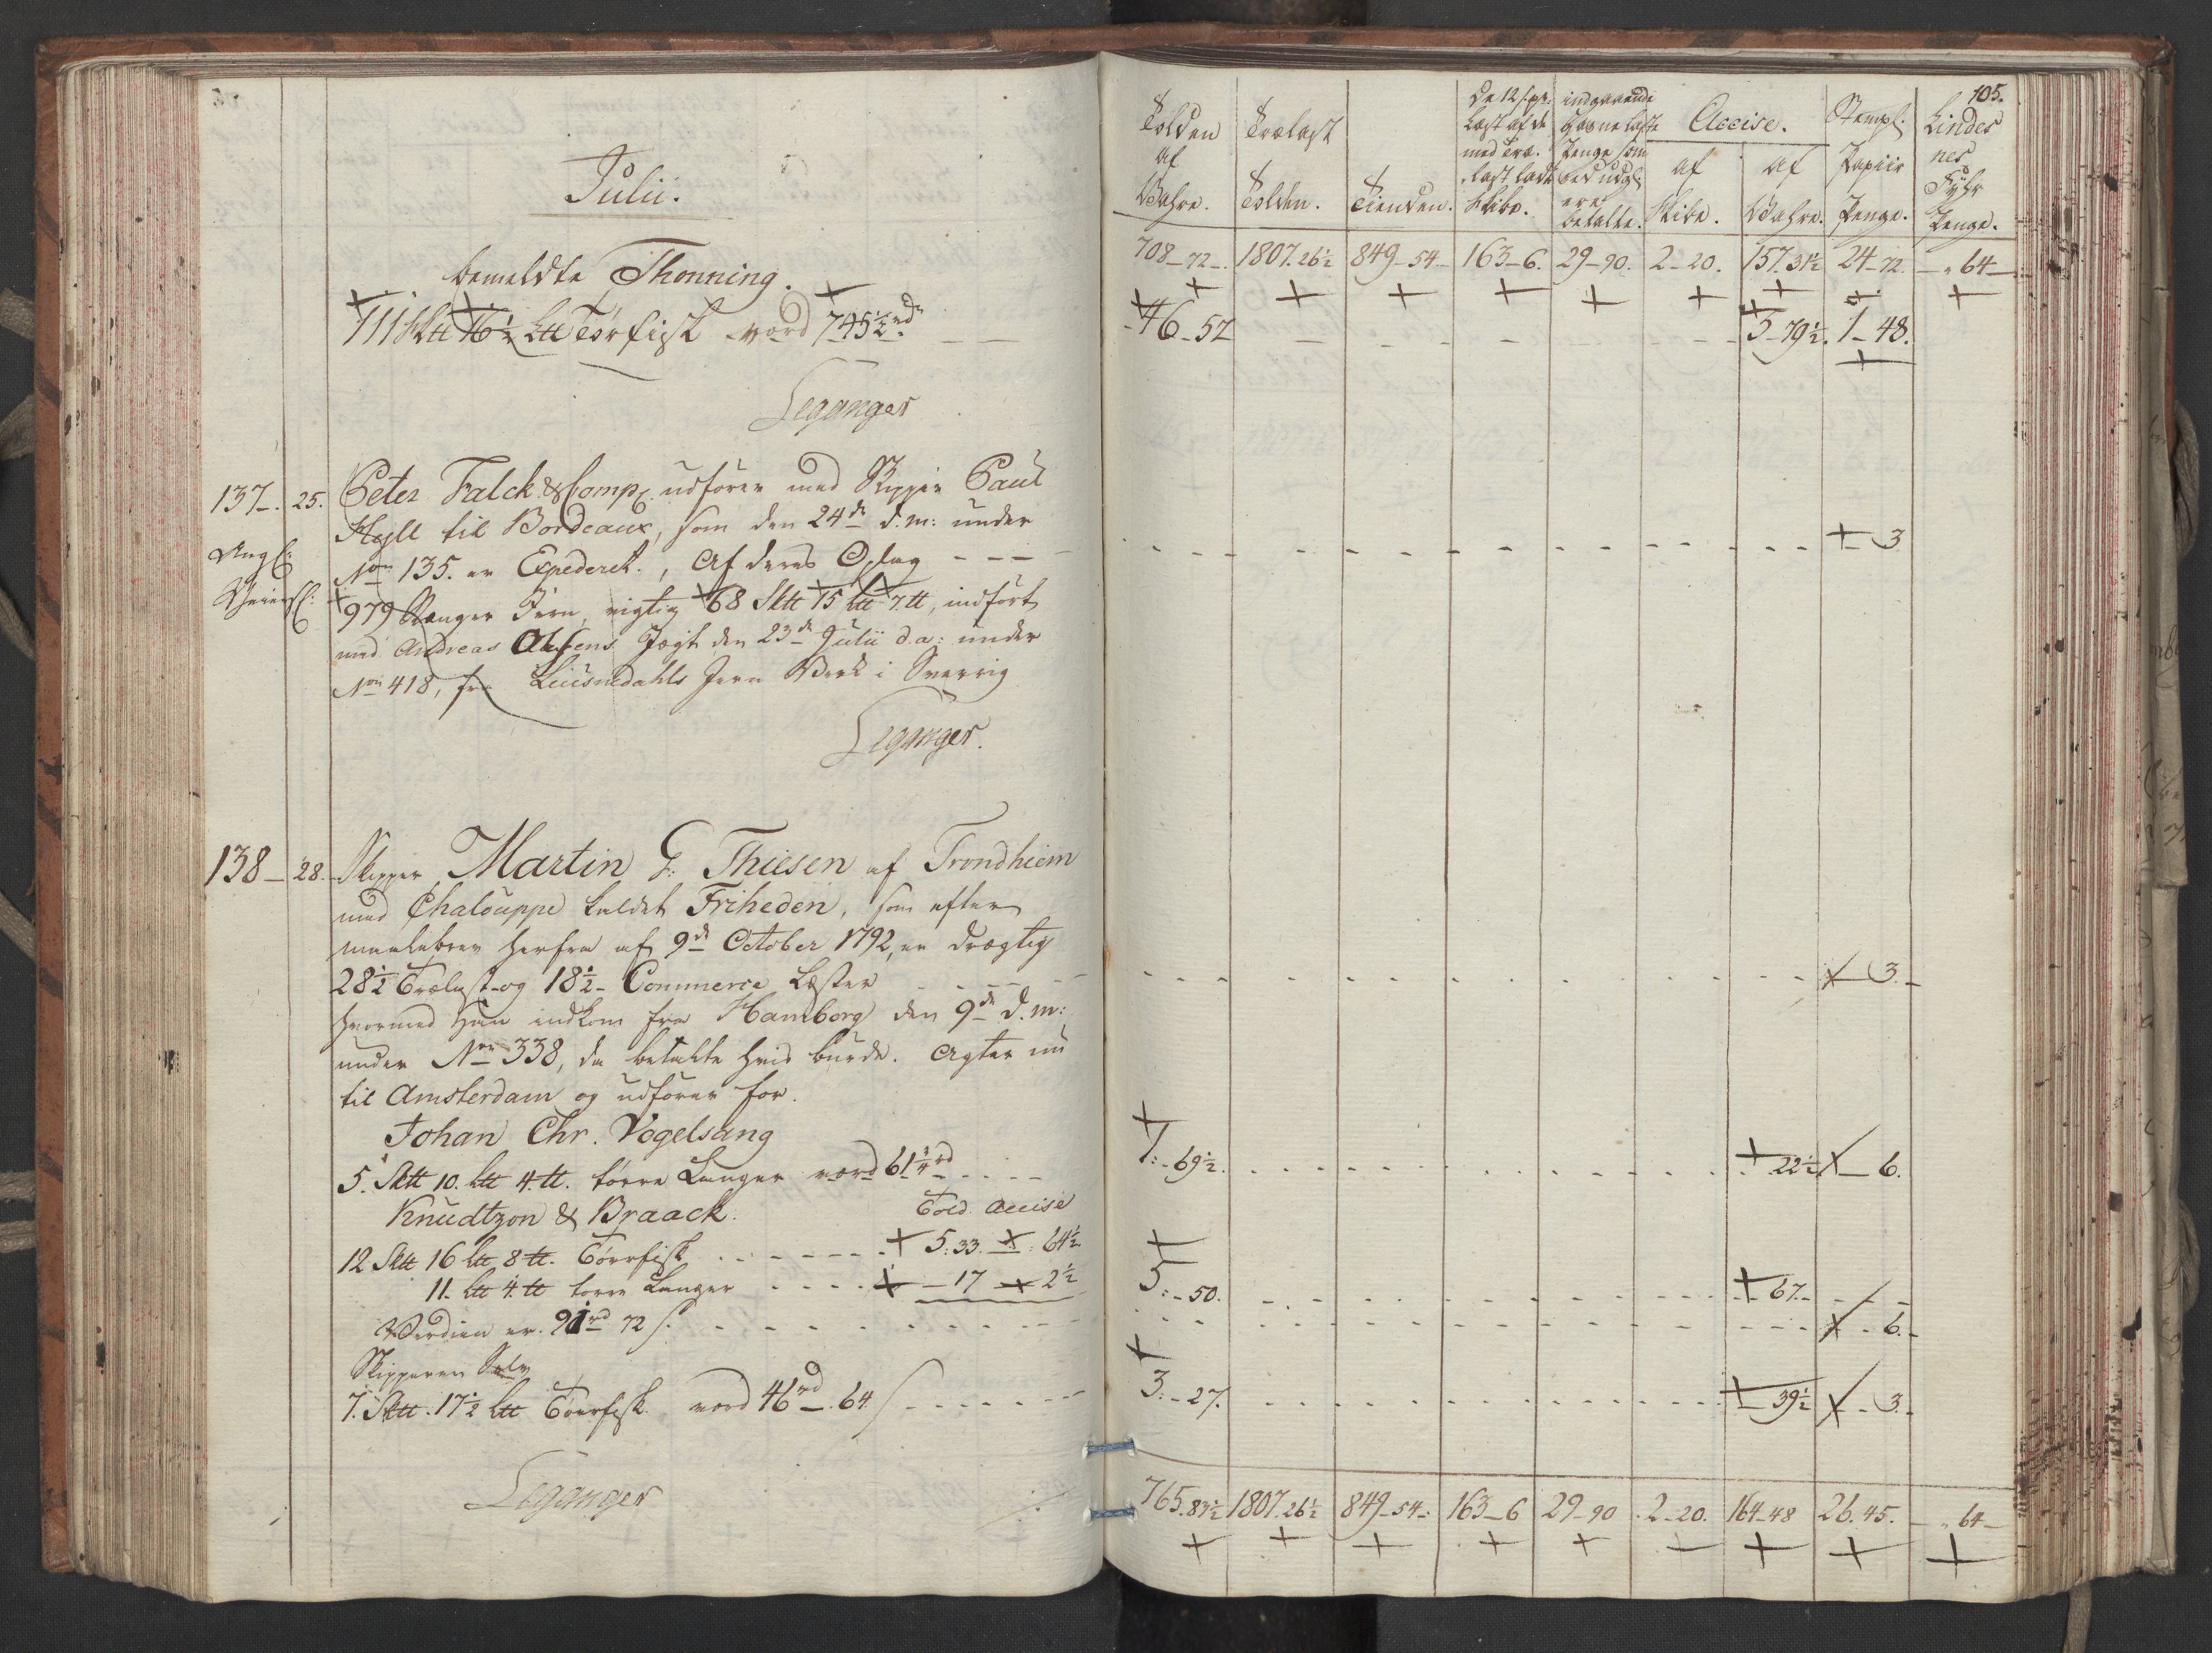 Julii.
bemeldte Thonning.
111 Sktt 16½ Ltt Tørfisk værd 745½ rd
Leganger
137. 25. Peter Falck & Comp: udfører med Skipper Paul
Hyll til Bordeaux, som den 24de d.m: under
No 135. er Expederet., Af deres Oplag
979 Stænger Jern, vigtig 68 Sktt 15 Ltt 7 tt, indført
med Andreas Olsens Jægt den 23de Julii d.a: under
No 418, fra Liusnedahls Jern Værk i Sverrig
Leganger.
138 28. Skipper Martin G: Thiesen af Trondhiem
med Chalouppe kaldet Friheden, som efter
maalebrev herfra af 9de October 1792, er drægtig
28½ Trælast og 18½ Commerce Læster
hvormed han indkom fra Hamborg den 9de d.m:
under No 338, da betalte hvis burde. Agter nu
til Amsterdam og udfører for.
Johan Chr. Vogelsang
5. Sktt 10. Ltt 4. tt. tørre Langer værd 61¼ rd
Knudtzon & Braack. Told. Accise
12 Sktt 16 Ltt 8 tt. Tørrfisk 5:33. : 64½
11. Ltt 4 tt tørre Langer 17 2½
Værdien er. 91 rd 72 s.
Skipperen Selv
7. Sktt. 17½ Ltt Tørrfisk. værd 46 rd. 64 s
Leganger
105.
Tolden af Vahre.
Trælast Tolden.
Tienden.
De 12 s. pr. Læst af de med Træ-last ladte Skibe.
indgaaende Havne Læste Penge som ved udgl: ere betalte.
Accise.
af Skibe.
af Vahre.
Stempl: Papiir Penge.
Lindes nes Fyhr Penge.
708-72 1807.26½ 849-54 163-6. 29-90. 2-20. 157.31½ 24-72. " 64
46-57 3-79½. 1-48.
3
3.
1:-69½. 22½ 6.
5:-50. 67.
6.
3:-27. 39½ 3.
765.83½ 1807.26½ 849-54 163-6 29-90 2-20. 164-48 26.45. " 64